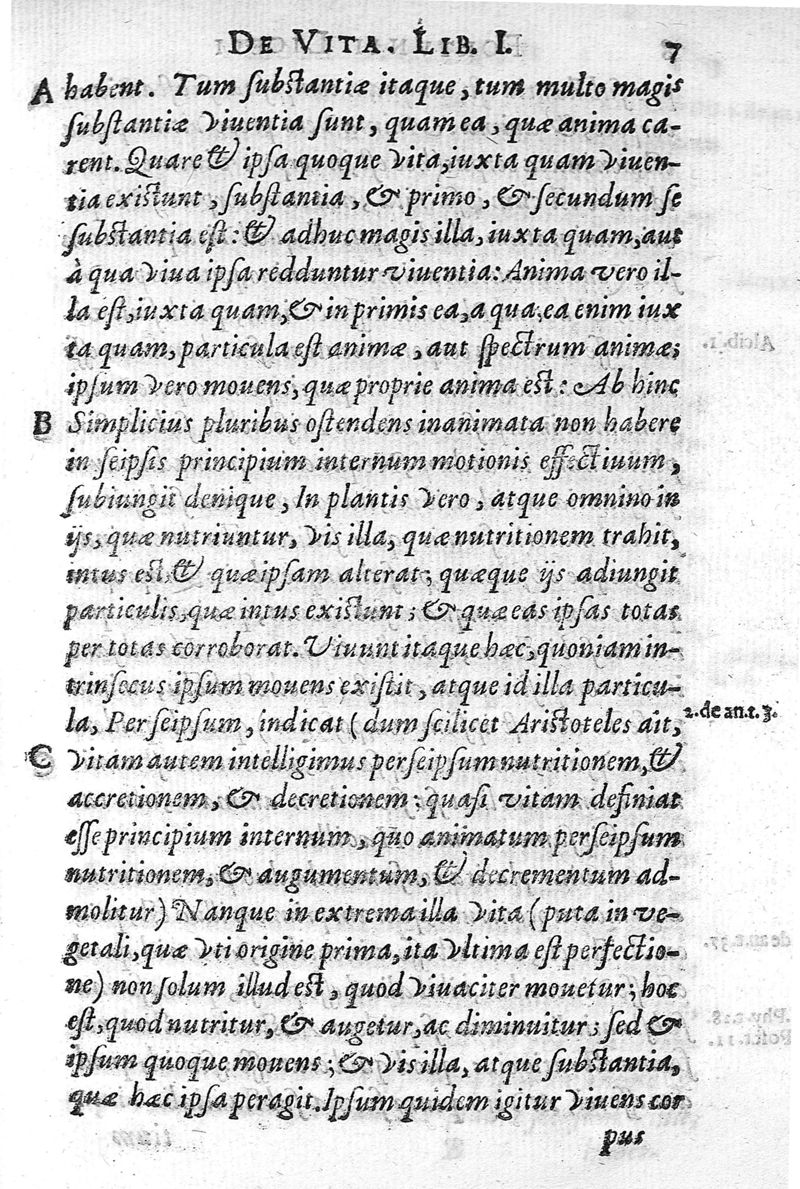 DE VITA. LIB. I. 7
A habent. Tum substantiæ itaque, tum multo magis
substantiæ viuentia sunt, quam ea, quæ anima ca-
rent. Quare & ipsa quoque vita, iuxta quam viuen-
tia existunt, substantia, & primo, & secundum se
substantia est: & adhuc magis illa, iuxta quam, aut
à qua viua ipsa redduntur viuentia: Anima vero il-
la est, iuxta quam, & in primis ea, a qua; ea enim iux
ta quam, particula est animæ, aut spectrum animæ;
ipsum vero mouens, quæ proprie anima est: Ab hinc
B Simplicius pluribus ostendens inanimata non habere
in seipsis principium internum motionis effectiuum,
subiungit denique, In plantis vero, atque omnino in
ijs, quæ nutriuntur, vis illa, quæ nutritionem trahit,
intus est, & quæ ipsam alterat; quæque ijs adiungit
particulis, quæ intus existunt; & quæ eas ipsas totas
per totas corroborat. Viuunt itaque hæc, quoniam in-
trinsecus ipsum mouens existit, atque id illa particu-
la, Per seipsum, indicat (dum scilicet Aristoteles ait, 2. de an. t. 3.
C vitam autem intelligimus per seipsum nutritionem, &
accretionem, & decretionem: quasi vitam definiat
esse principium internum, quo animatum per seipsum
nutritionem, & augumentum, & decrementum ad-
molitur) Nanque in extrema illa vita (puta in ve-
getali, quæ vti origine prima, ita vltima est perfectio-
ne) non solum illud est, quod viuaciter mouetur; hoc
est, quod nutritur, & augetur, ac diminuitur; sed &
ipsum quoque mouens; & vis illa, atque substantia,
quæ hæc ipsa peragit. Ipsum quidem igitur viuens cor
pus